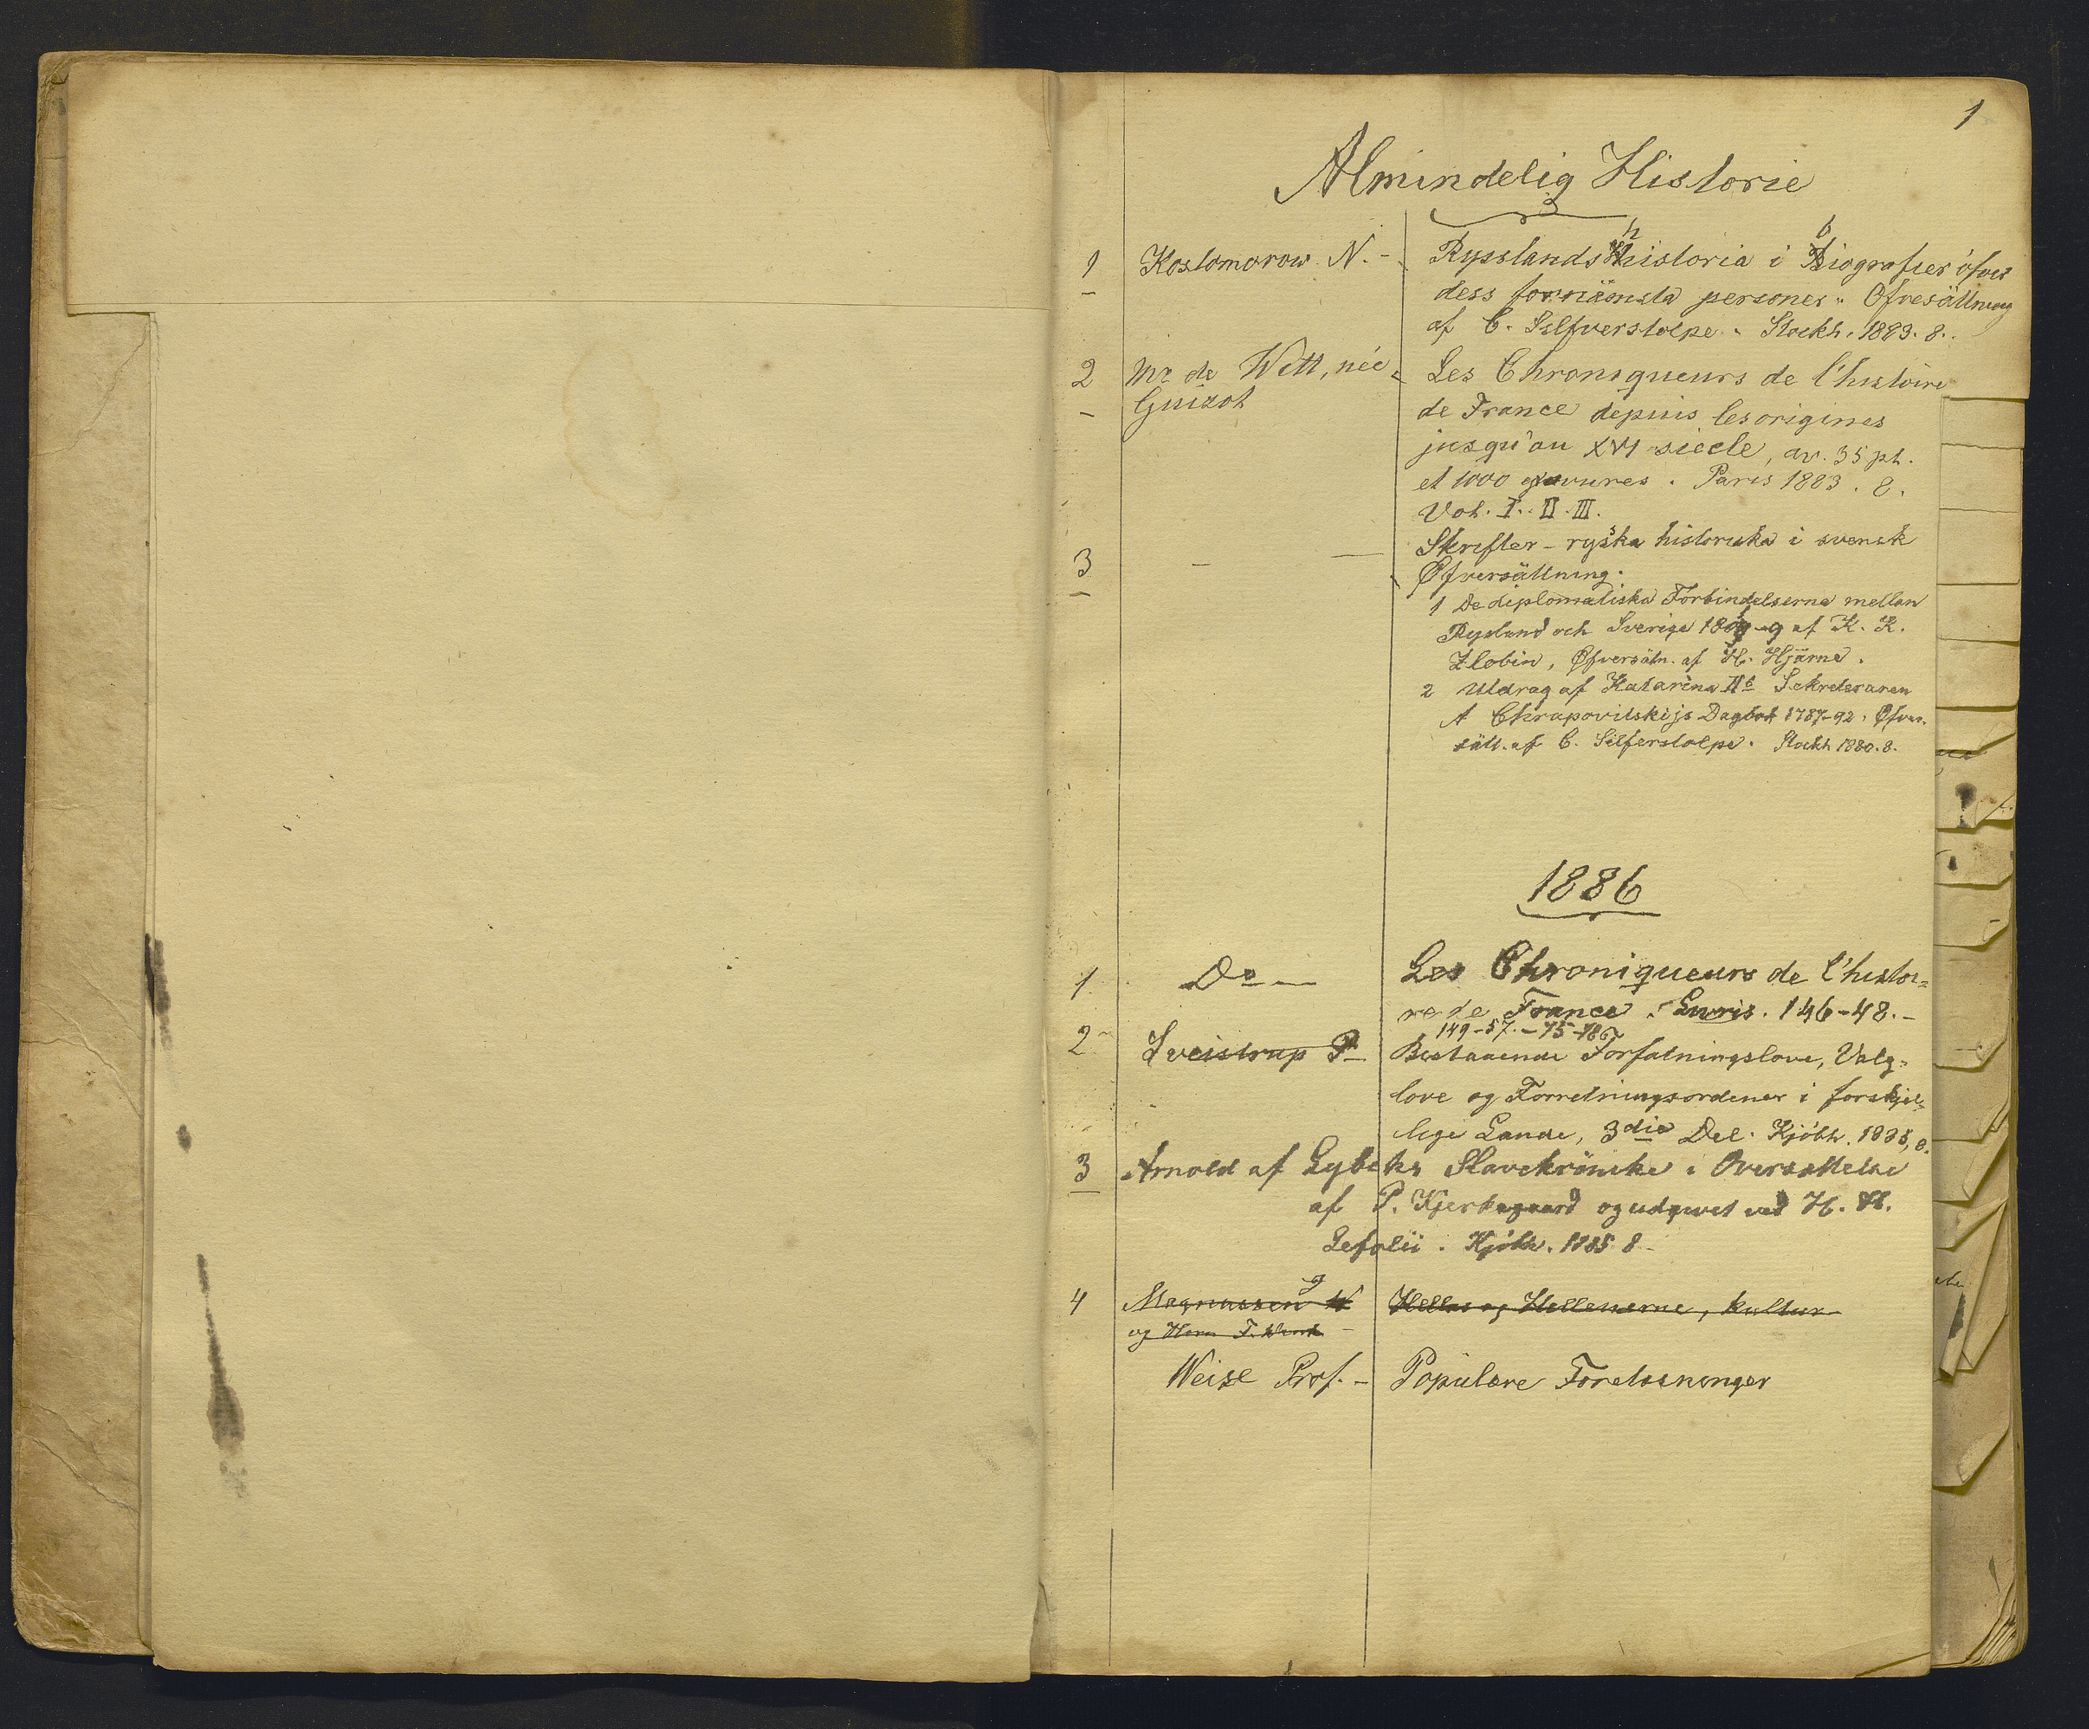 1
Almindelig Historie
1 Kostomarow. N. - Rysslands historia i biografier öfver
dess fornämsta personer. Öfvesättning
af C. Silfverstolpe. Stockh. 1883. 8.
2 Mr de Witt, née Les Chroniqueurs de l'histoire
Guizot de France depuis les origines
jusqu'au XVI siecle, av. 35 pl.
et 1000 gravures. Paris 1883. 8.
Vol. I. II. III.
3 - — Skrifter - ryska historiska i svensk
Øfversättning.
1 De diplomatiska Förbindelserna mellan
Rysland och Sverige af K. K.
Zlobin, Øfversätn. af H. Hjärne.
2 Utdrag af Katarina IIs Sekreteraren
A Chrapovitskijs Dagbok 1787-92. Øfver-
sätt. af C. Silferstolpe. Stockh 1880. 8.
1886
1 Do — Les Chroniqueurs de l'histoi=
re de France. Livris. 146-48. -
149-57. - 75-186
2 Sveistrup P- Bestaaende Forfatningslove, Valg=
love og Forretningsordener i forskjel=
lige Lande, 3die Del. Kjöbh. 1885, 8.
3 Arnold af Lybeks Slavekrönike i Oversættelse
af P. Kjerkegaard og udgivet ved H. H.
Lefolii. Kjöbh. 1885 8 -
4 Magnussen g Hellas og Hellenerne, kultur
og Horn F. Wink -
Weise Prof. - Populære Forelæsninger